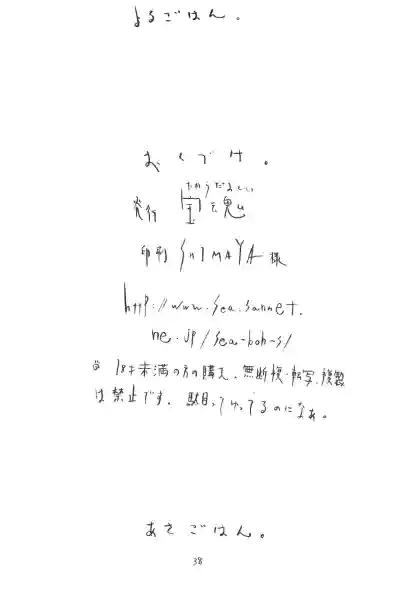 よるごはん。
おくづけ。
たからだましい
発行 宝魂
印刷 SHIMAYA 様
http://www.sea.sannet.
ne.jp/sea-boh-s/
18才未満の方の購入、無断複・転写、複製
は禁止です。駄目っていってるのになぁ。
あさごはん。
38